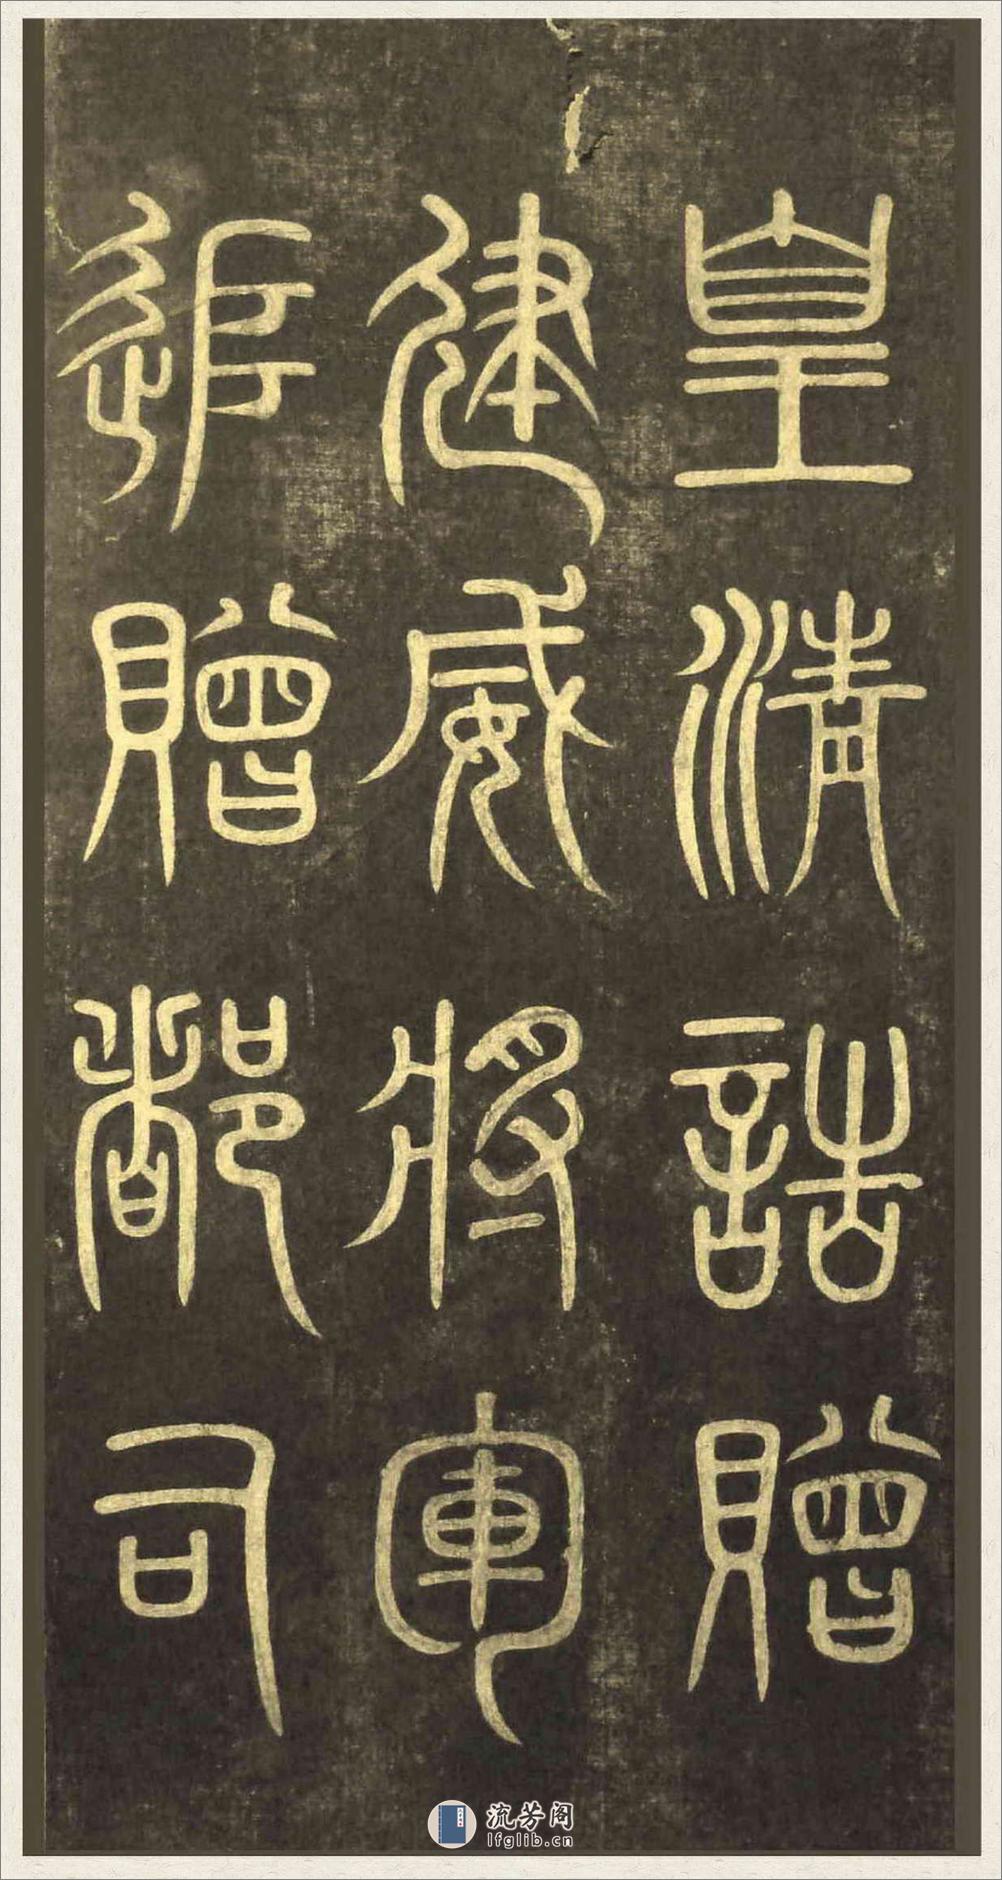 皇清誥贈
建威將軍
追贈都司
流芳阁
lfglib.cn